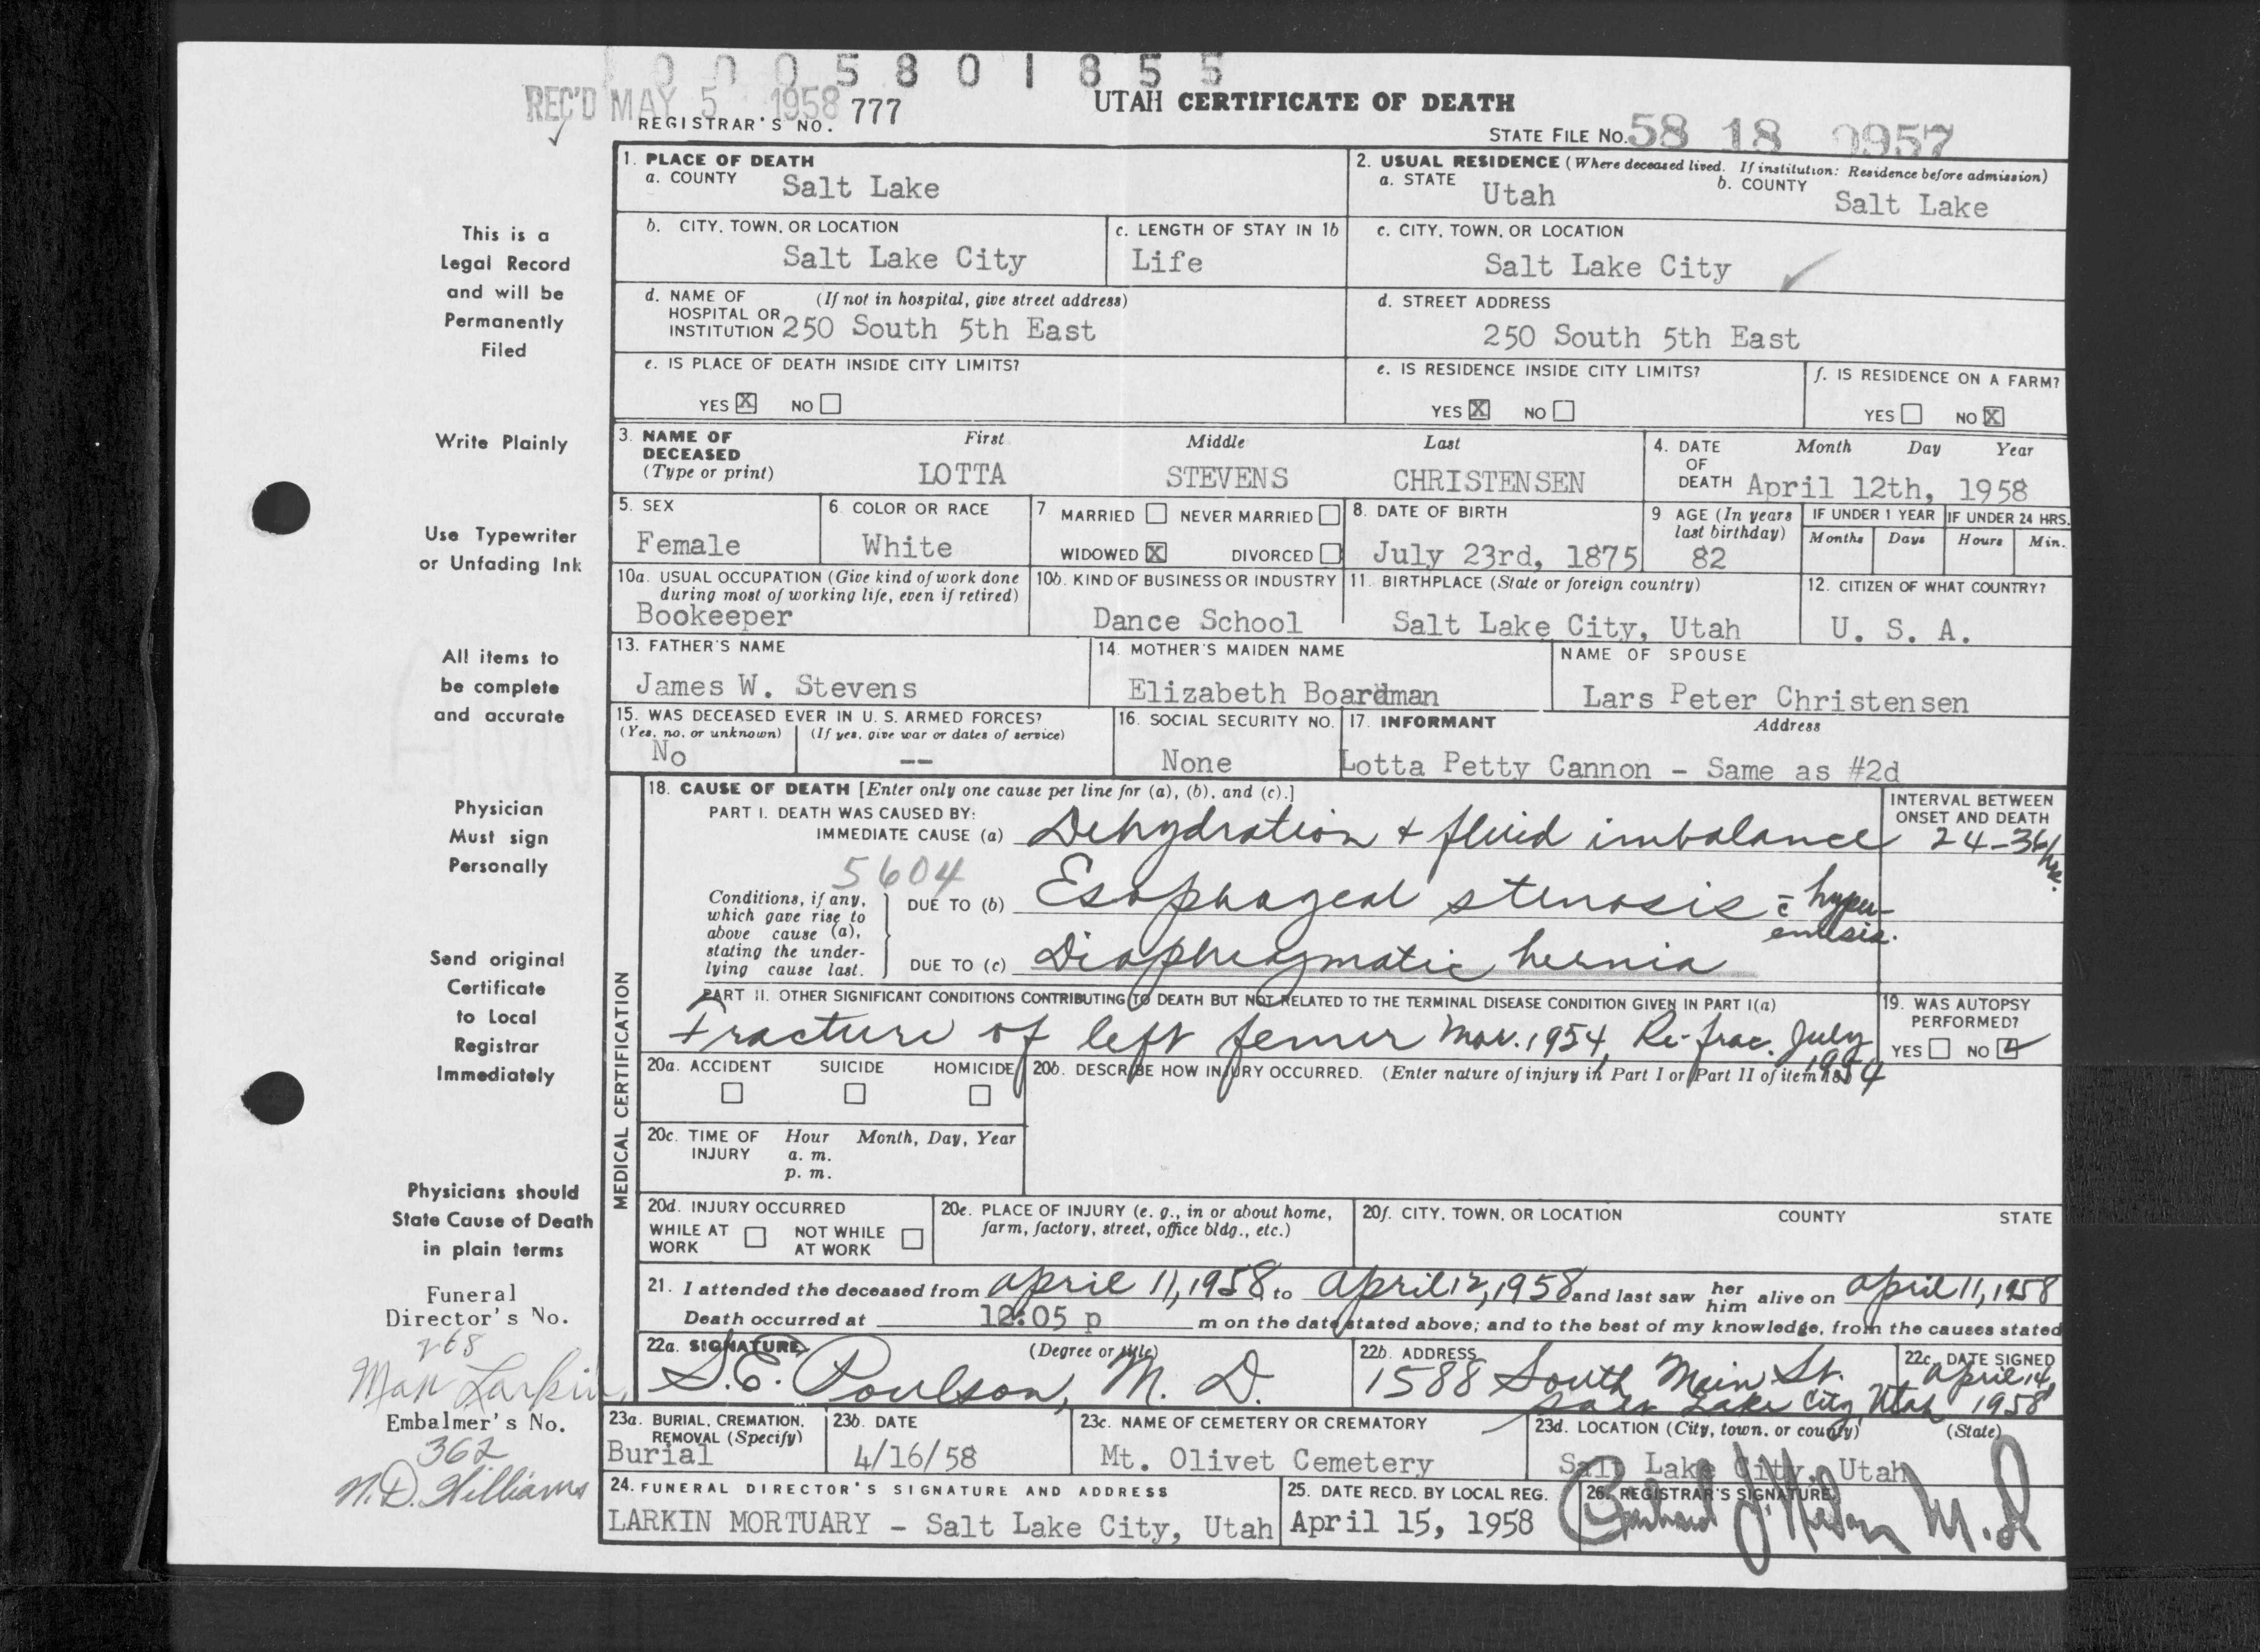 0 0 0 5 8 0 1 8 5 5
REC'D MAY 5 1958
REGISTRAR'S NO. 777
UTAH CERTIFICATE OF DEATH
STATE FILE NO. 58 18 0957
This is a
Legal Record
and will be
Permanently
Filed
Write Plainly
Use Typewriter
or Unfading Ink
All items to
be complete
and accurate
Physician
Must sign
Personally
Send original
Certificate
to Local
Registrar
Immediately
Physicians should
State Cause of Death
in plain terms
Funeral
Director's No.
268
Max Larkin
Embalmer's No.
362
N.D. Williams
1. PLACE OF DEATH
a. COUNTY Salt Lake
2. USUAL RESIDENCE (Where deceased lived. If institution: Residence before admission)
a. STATE Utah b. COUNTY Salt Lake
b. CITY, TOWN, OR LOCATION
Salt Lake City
c. LENGTH OF STAY IN 1b
Life
c. CITY, TOWN, OR LOCATION
Salt Lake City
d. NAME OF HOSPITAL OR INSTITUTION (If not in hospital, give street address)
250 South 5th East
d. STREET ADDRESS
250 South 5th East
e. IS PLACE OF DEATH INSIDE CITY LIMITS?
YES X NO
e. IS RESIDENCE INSIDE CITY LIMITS?
YES X NO
f. IS RESIDENCE ON A FARM?
YES NO X
3. NAME OF DECEASED (Type or print)
First Middle Last
LOTTA STEVENS CHRISTENSEN
4. DATE OF DEATH Month Day Year
April 12th, 1958
5. SEX
Female
6. COLOR OR RACE
White
7 MARRIED NEVER MARRIED
WIDOWED X DIVORCED
8. DATE OF BIRTH
July 23rd, 1875
9 AGE (In years last birthday)
82
IF UNDER 1 YEAR
Months Days
IF UNDER 24 HRS.
Hours Min.
10a. USUAL OCCUPATION (Give kind of work done
during most of working life, even if retired)
Bookeeper
10b. KIND OF BUSINESS OR INDUSTRY
Dance School
11. BIRTHPLACE (State or foreign country)
Salt Lake City, Utah
12. CITIZEN OF WHAT COUNTRY?
U. S. A.
13. FATHER'S NAME
James W. Stevens
14. MOTHER'S MAIDEN NAME
Elizabeth Boardman
NAME OF SPOUSE
Lars Peter Christensen
15. WAS DECEASED EVER IN U. S. ARMED FORCES?
(Yes, no, or unknown) (If yes, give war or dates of service)
No --
16. SOCIAL SECURITY NO.
None
17. INFORMANT Address
Lotta Petty Cannon - Same as #2d
MEDICAL CERTIFICATION
18. CAUSE OF DEATH [Enter only one cause per line for (a), (b), and (c).]
PART I. DEATH WAS CAUSED BY:
IMMEDIATE CAUSE (a) Dehydration + fluid imbalance
INTERVAL BETWEEN
ONSET AND DEATH
24-36 hrs.
5604
Conditions, if any,
which gave rise to
above cause (a),
stating the under-
lying cause last.
DUE TO (b) Esophageal stenosis c̄ hyper-
emesis.
DUE TO (c) Diaphragmatic hernia
PART II. OTHER SIGNIFICANT CONDITIONS CONTRIBUTING TO DEATH BUT NOT RELATED TO THE TERMINAL DISEASE CONDITION GIVEN IN PART I(a)
Fracture of left femur Mar. 1954, Re-frac. July
1954
19. WAS AUTOPSY
PERFORMED?
YES NO
20a. ACCIDENT SUICIDE HOMICIDE
20b. DESCRIBE HOW INJURY OCCURRED. (Enter nature of injury in Part I or Part II of item 18.)
20c. TIME OF INJURY Hour Month, Day, Year
a. m.
p. m.
20d. INJURY OCCURRED
WHILE AT WORK NOT WHILE AT WORK
20e. PLACE OF INJURY (e. g., in or about home,
farm, factory, street, office bldg., etc.)
20f. CITY, TOWN, OR LOCATION COUNTY STATE
21. I attended the deceased from April 11, 1958 to April 12, 1958 and last saw her him alive on April 11, 1958
Death occurred at 12:05 p m on the date stated above; and to the best of my knowledge, from the causes stated
22a. SIGNATURE (Degree or title)
S.E. Poulson, M. D.
22b. ADDRESS
1588 South Main St.
Salt Lake City, Utah
22c. DATE SIGNED
April 14,
1958
23a. BURIAL, CREMATION,
REMOVAL (Specify)
Burial
23b. DATE
4/16/58
23c. NAME OF CEMETERY OR CREMATORY
Mt. Olivet Cemetery
23d. LOCATION (City, town, or county) (State)
Salt Lake City, Utah
24. FUNERAL DIRECTOR'S SIGNATURE AND ADDRESS
LARKIN MORTUARY - Salt Lake City, Utah
25. DATE RECD. BY LOCAL REG.
April 15, 1958
26. REGISTRAR'S SIGNATURE
M.D